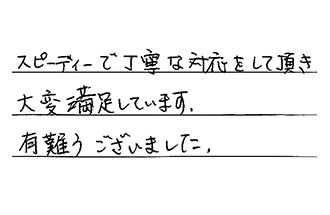 スピーディーで丁寧な対応をして頂き
大変満足しています.
有難うございました.